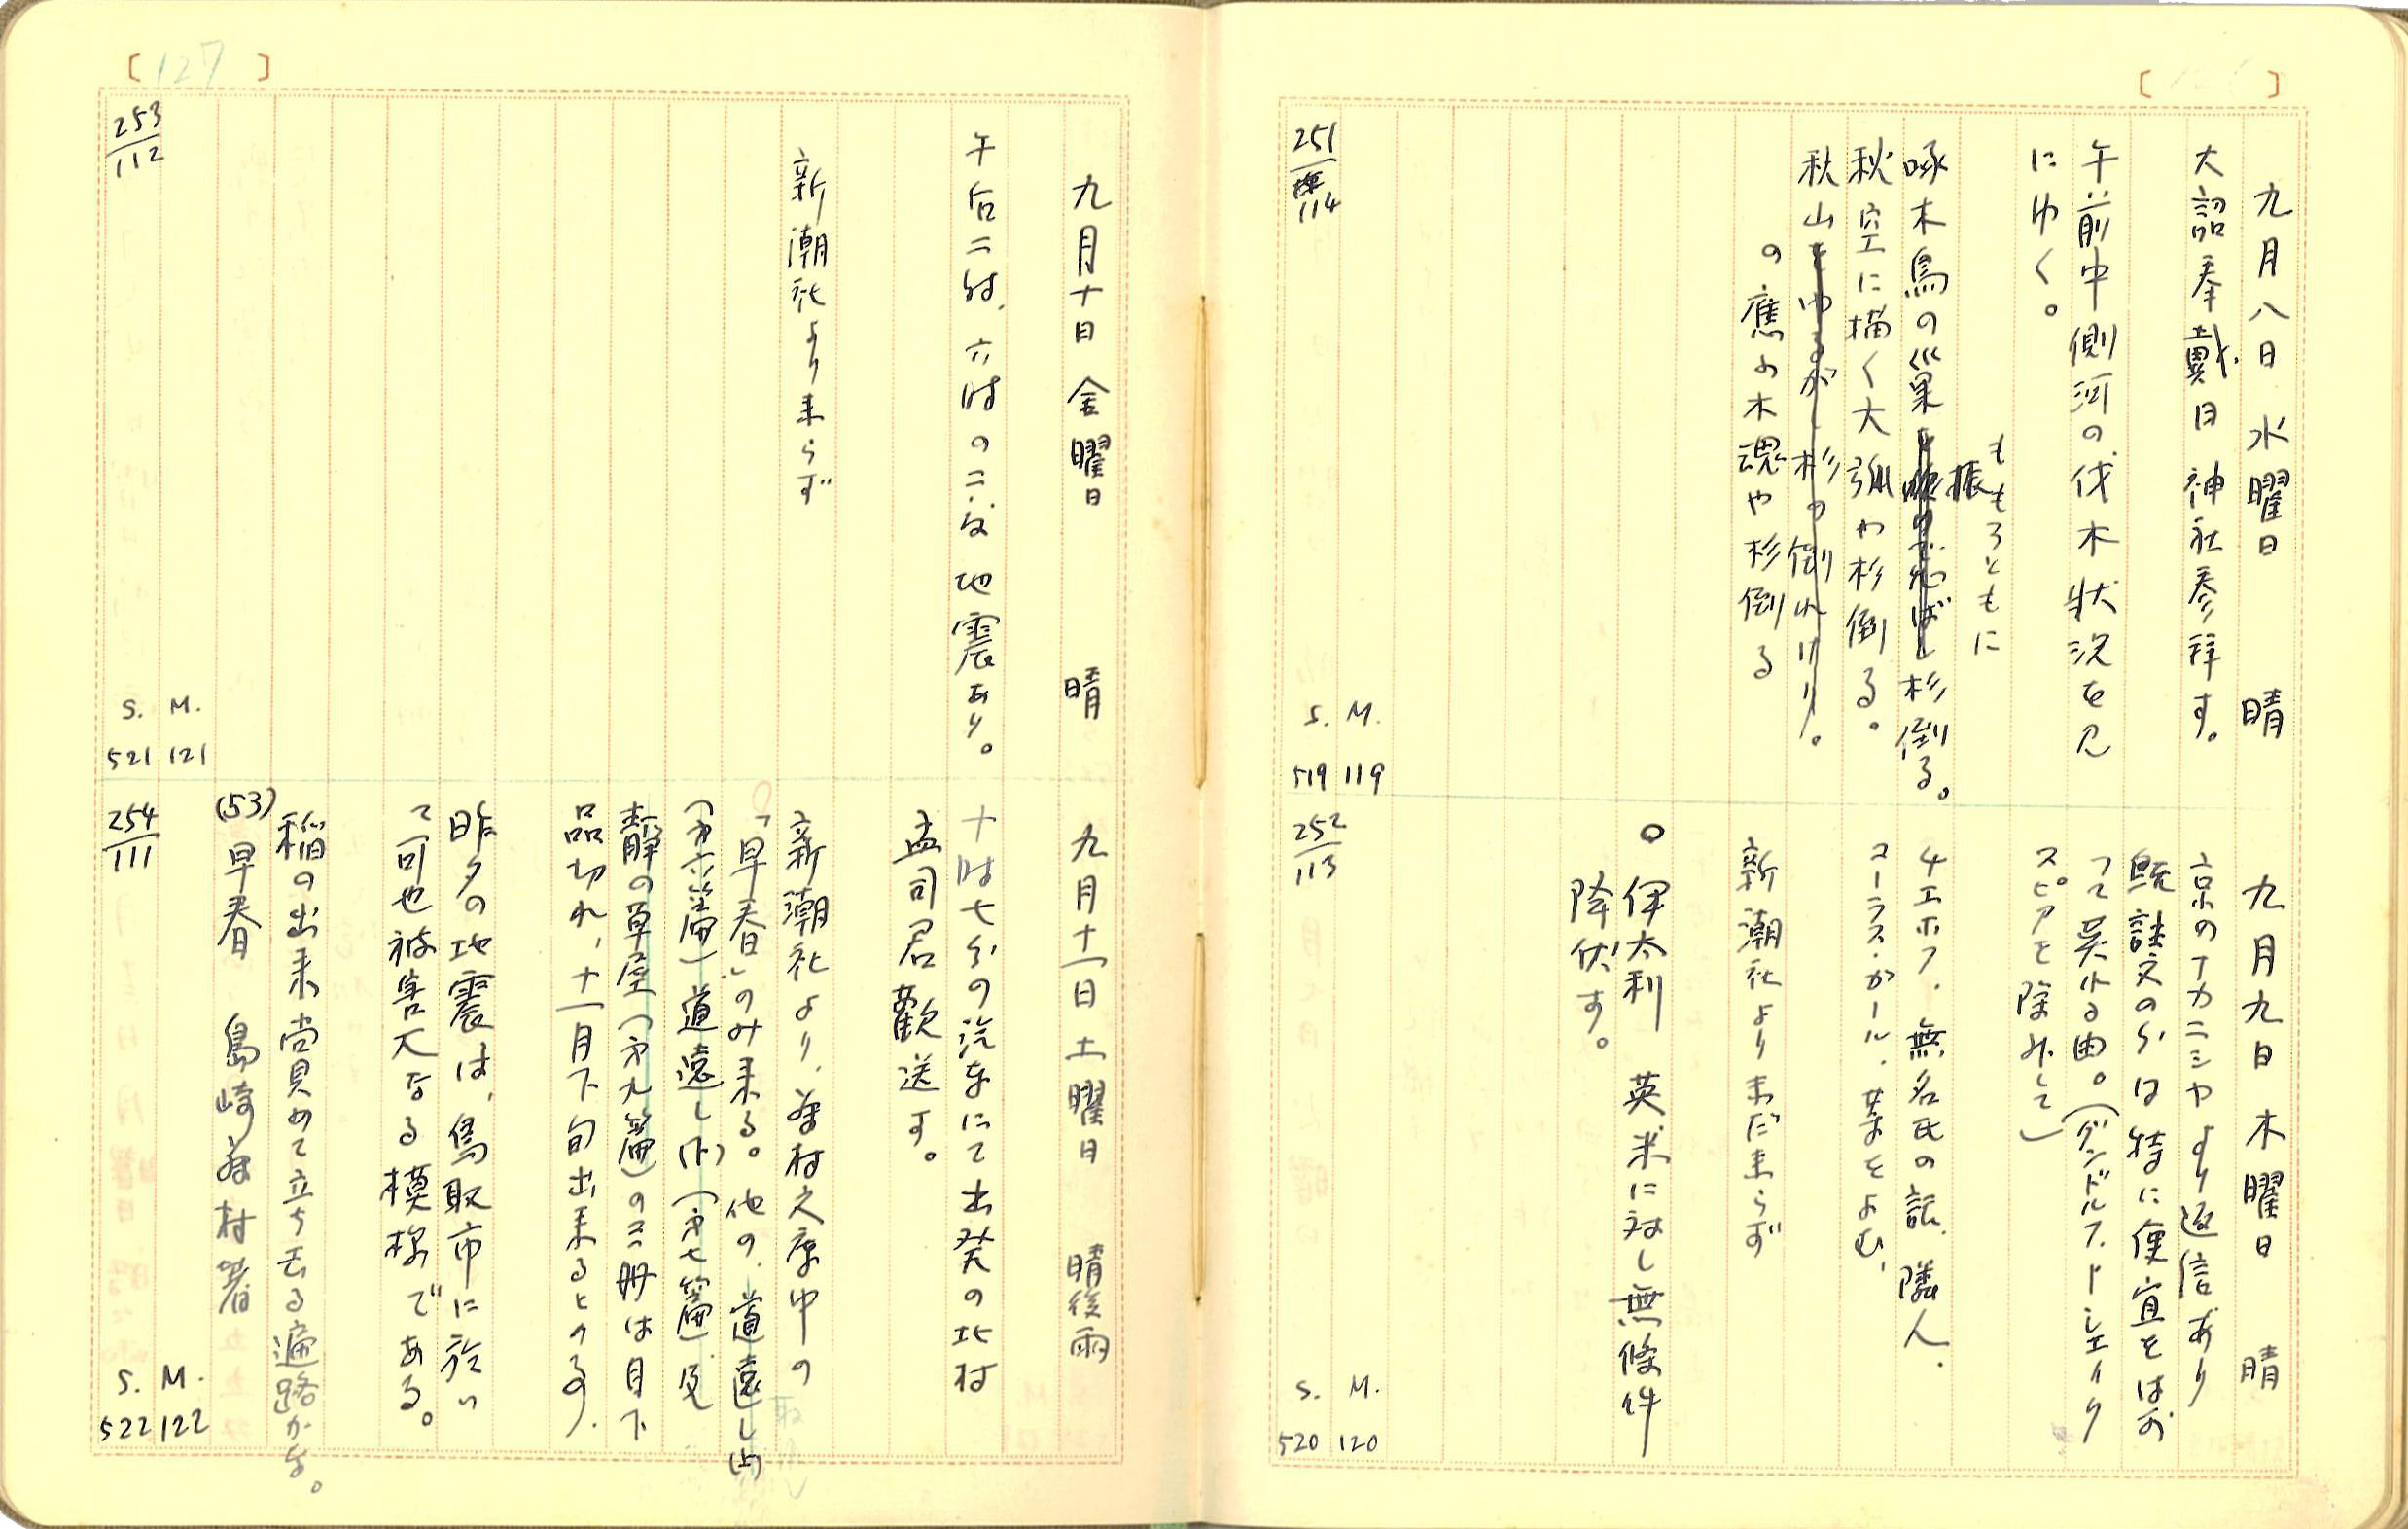 九月八日 水曜日 晴
大詔奉戴日 神社参拝す。
午前中側河の伐木状況を見
にゆく。
ももろともに
振
啄木鳥の巣 杉倒る。
秋空に描く大弧や杉倒る。
秋山をゆるがし杉の倒れけり。
の應ふ木魂や杉倒る
251/114
S. M.
519 119
九月九日 木曜日 晴
京のナカニシヤより返信あり
既註文の分は特に便宜をはか
つて呉れる由。(グンドルフ、ドシェイク
スピアを除外して)
チエホフ、無名氏の話、隣人、
コーラス・ガール、等をよむ、
新潮社よりまだ来らず
○伊太利 英米に対し無條件
降伏す。
252/113
S. M.
520 120
[127]
九月十日 金曜日 晴
午后二時、六時の二度 地震あり。
新潮社より来らず
253/112
S. M.
521 121
九月十一日 土曜日 晴後雨
十時七分の汽車にて出発の北村
孟司君歡送す。
新潮社より、藤村文庫中の
「早春」のみ来る。他の、道遠し(上)
(第六篇)、道遠し(下)(第七篇)、及
静の草屋(第九篇)の三冊は目下
品切れ、十一月下旬出来るとの事、
昨夕の地震は、鳥取市に於い
て可也被害大なる模様である。
稲の出来賞めて立ち去る遍路かな。
(53)早春 島崎藤村著
254/111
S. M.
522 122